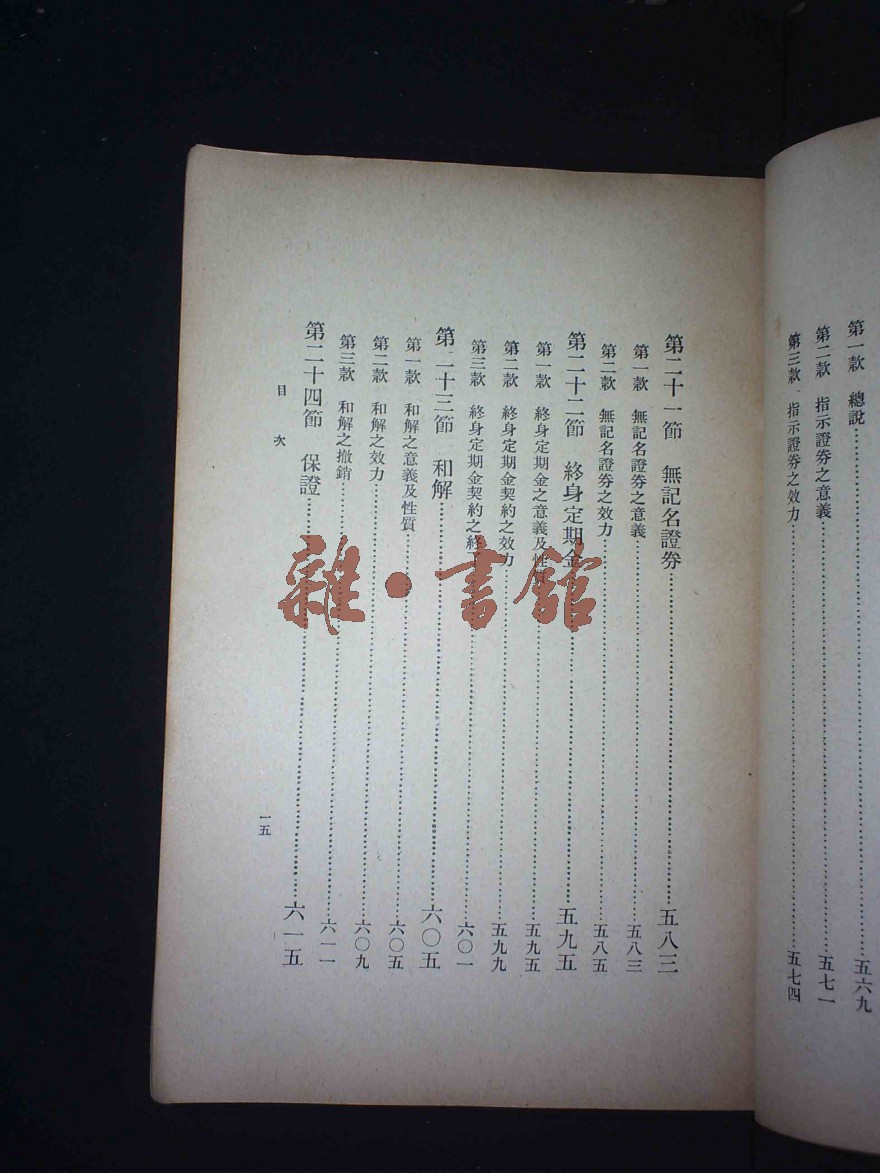 第一款 總說……五六九
第二款 指示證券之意義……五七一
第三款 指示證券之效力……五七四
第二十一節 無記名證券……五八三
第一款 無記名證券之意義……五八三
第二款 無記名證券之效力……五八五
第二十二節 終身定期金……五九五
第一款 終身定期金之意義及性質……五九五
第二款 終身定期金契約之效力……五九九
第三款 終身定期金契約之終……六〇一
第二十三節 和解……六〇五
第一款 和解之意義及性質……六〇五
第二款 和解之效力……六〇九
第三款 和解之撤銷……六一一
第二十四節 保證……六一五
目次
一五
雜·書館